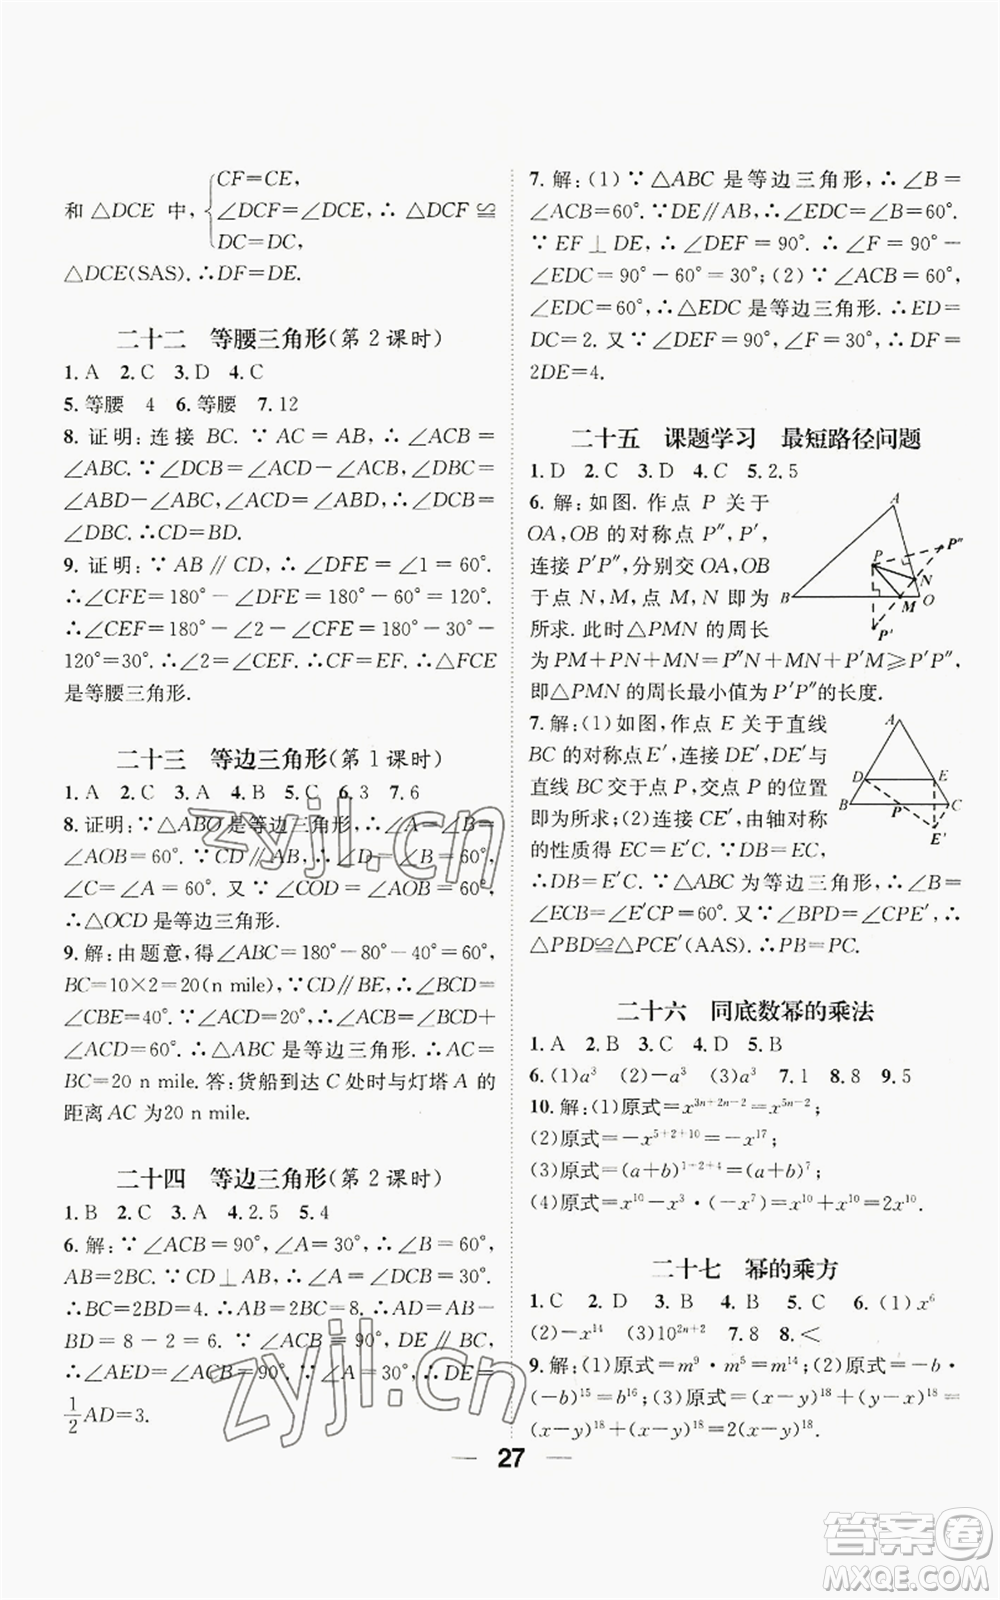 和 △DCE 中, { CF=CE,
∠DCF=∠DCE, ∴ △DCF ≌
DC=DC,
△DCE(SAS). ∴DF=DE.
二十二 等腰三角形(第 2 课时)
1. A 2. C 3. D 4. C
5. 等腰 4 6. 等腰 7. 12
8. 证明:连接 BC. ∵ AC = AB, ∴ ∠ACB =
∠ABC. ∵ ∠DCB = ∠ACD − ∠ACB, ∠DBC =
∠ABD−∠ABC, ∠ACD=∠ABD, ∴∠DCB=
∠DBC. ∴CD=BD.
9. 证明: ∵ AB // CD, ∴ ∠DFE = ∠1 = 60°.
∴ ∠CFE = 180° − ∠DFE = 180° − 60° = 120°.
∴∠CEF=180°−∠2−∠CFE=180°−30°−
120°=30°. ∴∠2=∠CEF. ∴CF=EF. ∴△FCE
是等腰三角形.
二十三 等边三角形(第 1 课时)
1. A 2. C 3. A 4. B 5. C 6. 3 7. 6
8. 证明:∵△ABO 是等边三角形, ∴∠A=∠B=
∠AOB = 60°. ∵ CD // AB, ∴ ∠D = ∠B = 60°,
∠C = ∠A = 60°. 又 ∵ ∠COD = ∠AOB = 60°,
∴△OCD 是等边三角形.
9. 解:由题意,得∠ABC=180°−80°−40°=60°,
BC=10×2=20(n mile), ∵CD // BE, ∴∠BCD=
∠CBE=40°. ∵∠ACD=20°, ∴∠ACB=∠BCD+
∠ACD=60°. ∴△ABC 是等边三角形. ∴AC=
BC=20 n mile. 答:货船到达 C 处时与灯塔 A 的
距离 AC 为20 n mile.
二十四 等边三角形(第 2 课时)
1. B 2. C 3. A 4. 2.5 5. 4
6. 解: ∵ ∠ACB = 90°, ∠A = 30°, ∴ ∠B = 60°,
AB=2BC. ∵CD⊥AB, ∴∠A=∠DCB=30°.
∴ BC=2BD=4. ∴ AB=2BC=8. ∴ AD=AB−
BD = 8 − 2 = 6. ∵ ∠ACB = 90°, DE // BC,
∴ ∠AED=∠ACB=90°. ∵ ∠A = 30°, ∴ DE =
1/2 AD=3.
7. 解:(1) ∵ △ABC 是等边三角形, ∴ ∠B =
∠ACB=60°. ∵DE // AB, ∴∠EDC=∠B=60°.
∵ EF ⊥ DE, ∴ ∠DEF = 90°. ∴ ∠F = 90° −
∠EDC = 90° − 60° = 30°; (2) ∵ ∠ACB = 60°,
∠EDC=60°, ∴△EDC 是等边三角形. ∴ED=
DC = 2. 又 ∵ ∠DEF = 90°, ∠F = 30°, ∴ DF =
2DE=4.
二十五 课题学习 最短路径问题
1. D 2. C 3. D 4. C 5. 2.5
6. 解:如图. 作点 P 关于
OA, OB 的对称点 P″, P′,
连接 P′P″, 分别交 OA, OB
于点 N, M, 则 MN 即为
所求. 此时△PMN 的周长
为 PM+PN+MN=P″N+MN+P′M≥P′P″,
即△PMN 的周长最小值为 P′P″的长度.
A
P
P″
N
B
M
O
P′
7. 解:(1)如图,作点 E 关于直线
BC 的对称点 E′, 连接 DE′, DE′与
直线 BC 交于点 P, 交点 P 的位置
即为所求;(2)连接 CE′, 由轴对称
的性质得 EC=E′C. ∵DB=EC,
∴DB=E′C. ∵△ABC 为等边三角形, ∴∠B=
∠ECB=∠E′CP=60°. 又∵∠BPD=∠CPE′, ∴
△PBD≌△PCE′(AAS). ∴PB=PC.
A
D
E
B
P
C
E′
二十六 同底数幂的乘法
1. A 2. B 3. C 4. D 5. B
6. (1)a³ (2)−a³ (3)a³ 7. 1 8. 8 9. 5
10. 解:(1)原式=x³ⁿ⁺²ⁿ⁻²=x⁵ⁿ⁻²;
(2)原式=−x⁵⁺²⁺¹⁰=−x¹⁷;
(3)原式=(a+b)¹⁺²⁺⁴=(a+b)⁷;
(4)原式=x¹⁰−x³·(−x⁷)=x¹⁰+x¹⁰=2x¹⁰.
二十七 幂的乘方
1. C 2. D 3. B 4. B 5. C 6. (1)x⁶
(2)−x¹⁴ (3)10²ⁿ⁺² 7. 8 8. <
9. 解:(1)原式=m⁹·m⁵=m¹⁴;(2)原式=−b·
(−b)¹⁵=b¹⁶;(3)原式=(x−y)¹⁸+(x−y)¹⁸=
(x−y)¹⁸+(x−y)¹⁸=2(x−y)¹⁸.
27
zyjl.cn
zyjl.cn
答案卷
MXQE.COM